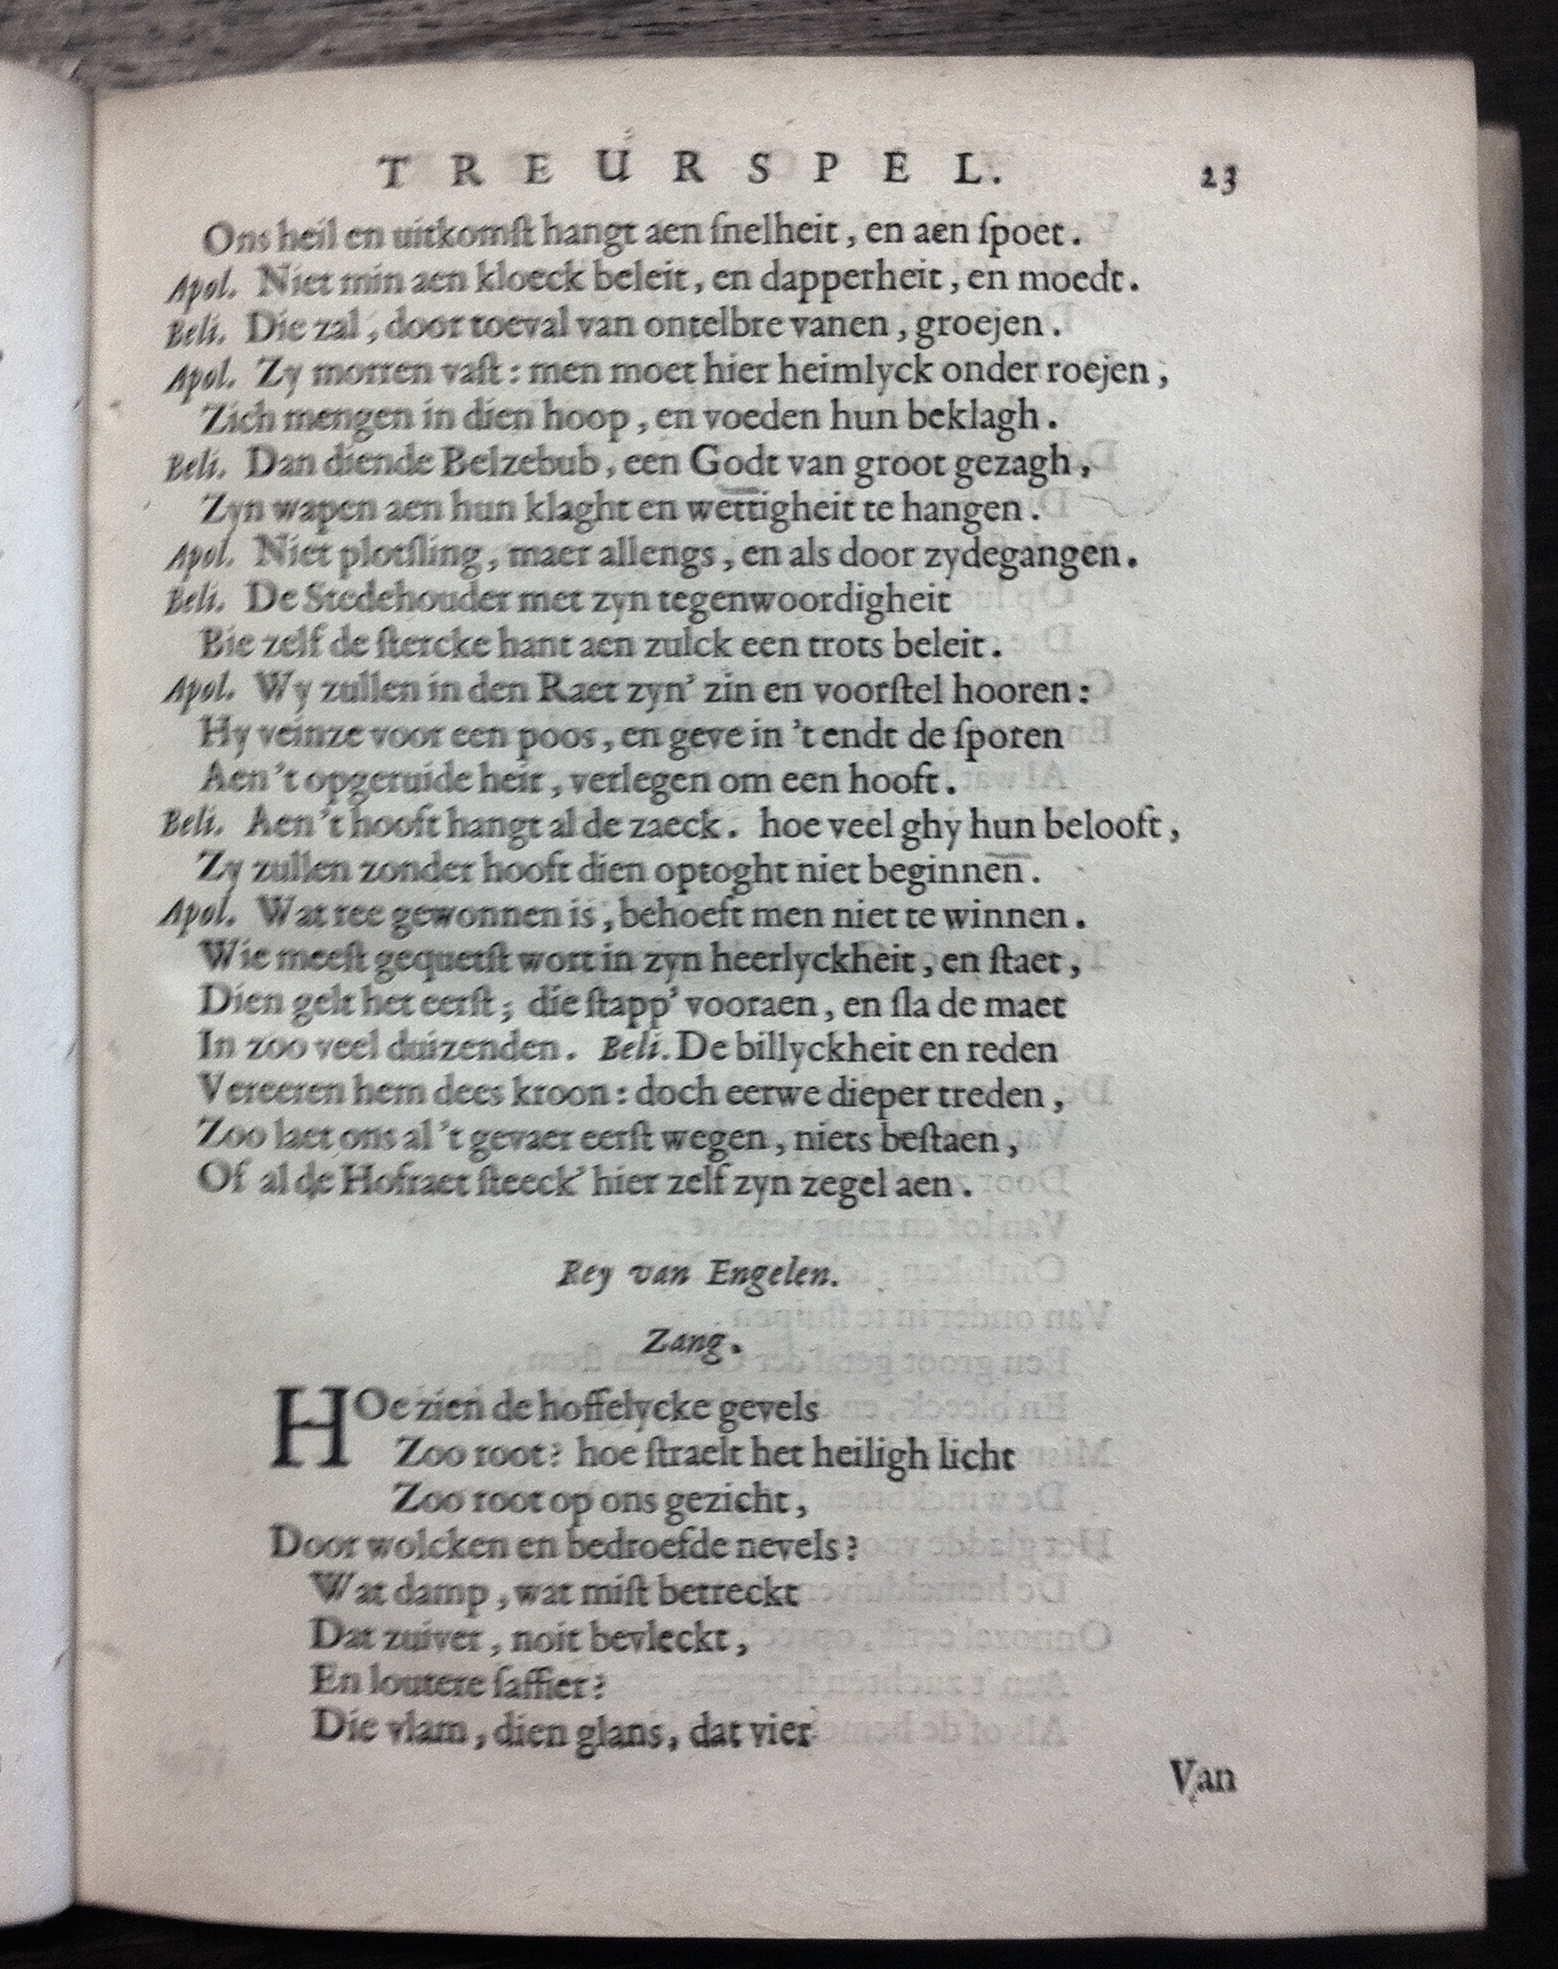 TREURSPEL. 23
Ons heil en uitkomſt hangt aen ſnelheit, en aen ſpoet.
Apol. Niet min aen kloeck beleit, en dapperheit, en moedt.
Beli. Die zal, door toeval van ontelbre vanen, groejen.
Apol. Zy morren vaſt: men moet hier heimlyck onder roejen,
Zich mengen in dien hoop, en voeden hun beklagh.
Beli. Dan diende Belzebub, een Godt van groot gezagh,
Zyn wapen aen hun klaght en wettigheit te hangen.
Apol. Niet plotſling, maer allengs, en als door zydegangen.
Beli. De Stedehouder met zyn tegenwoordigheit
Bie zelf de ſtercke hant aen zulck een trots beleit.
Apol. Wy zullen in den Raet zyn' zin en voorſtel hooren:
Hy veinze voor een poos, en geve in 't endt de ſporen
Aen 't opgeruide heir, verlegen om een hooft.
Beli. Aen 't hooft hangt al de zaeck. hoe veel ghy hun belooft,
Zy zullen zonder hooft dien optoght niet beginnen.
Apol. Wat ree gewonnen is, behoeft men niet te winnen.
Wie meeſt gequetſt wort in zyn heerlyckheit, en ſtaet,
Dien gelt het eerſt; die ſtapp' vooraen, en ſla de maet
In zoo veel duizenden. Beli. De billyckheit en reden
Vereeren hem dees kroon: doch eerwe dieper treden,
Zoo laet ons al 't gevaer eerſt wegen, niets beſtaen,
Of al de Hofraet ſteeck' hier zelf zyn zegel aen.
Rey van Engelen.
Zang.
HOe zien de hoffelycke gevels
Zoo root? hoe ſtraelt het heiligh licht
Zoo root op ons gezicht,
Door wolcken en bedroefde nevels?
Wat damp, wat miſt betreckt
Dat zuiver, noit bevleckt,
En loutere ſaffier?
Die vlam, dien glans, dat vier
Van